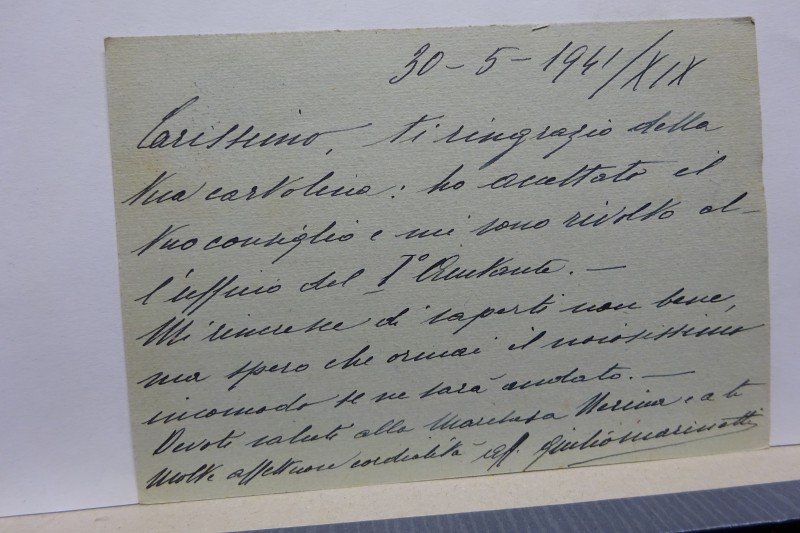 30-5-1941/XIX
Carissimo, ti ringrazio della
tua cartolina: ho accettato il
tuo consiglio e mi sono rivolto al-
l'ufficio del I° Aiutante. —
Mi rincresce di saperti non bene,
ma spero che ormai il noiosissimo
incomodo se ne sarà andato. —
Devoti saluti alla Marchesa Nerina e a te
molte affettuose cordialità aff. Giulio